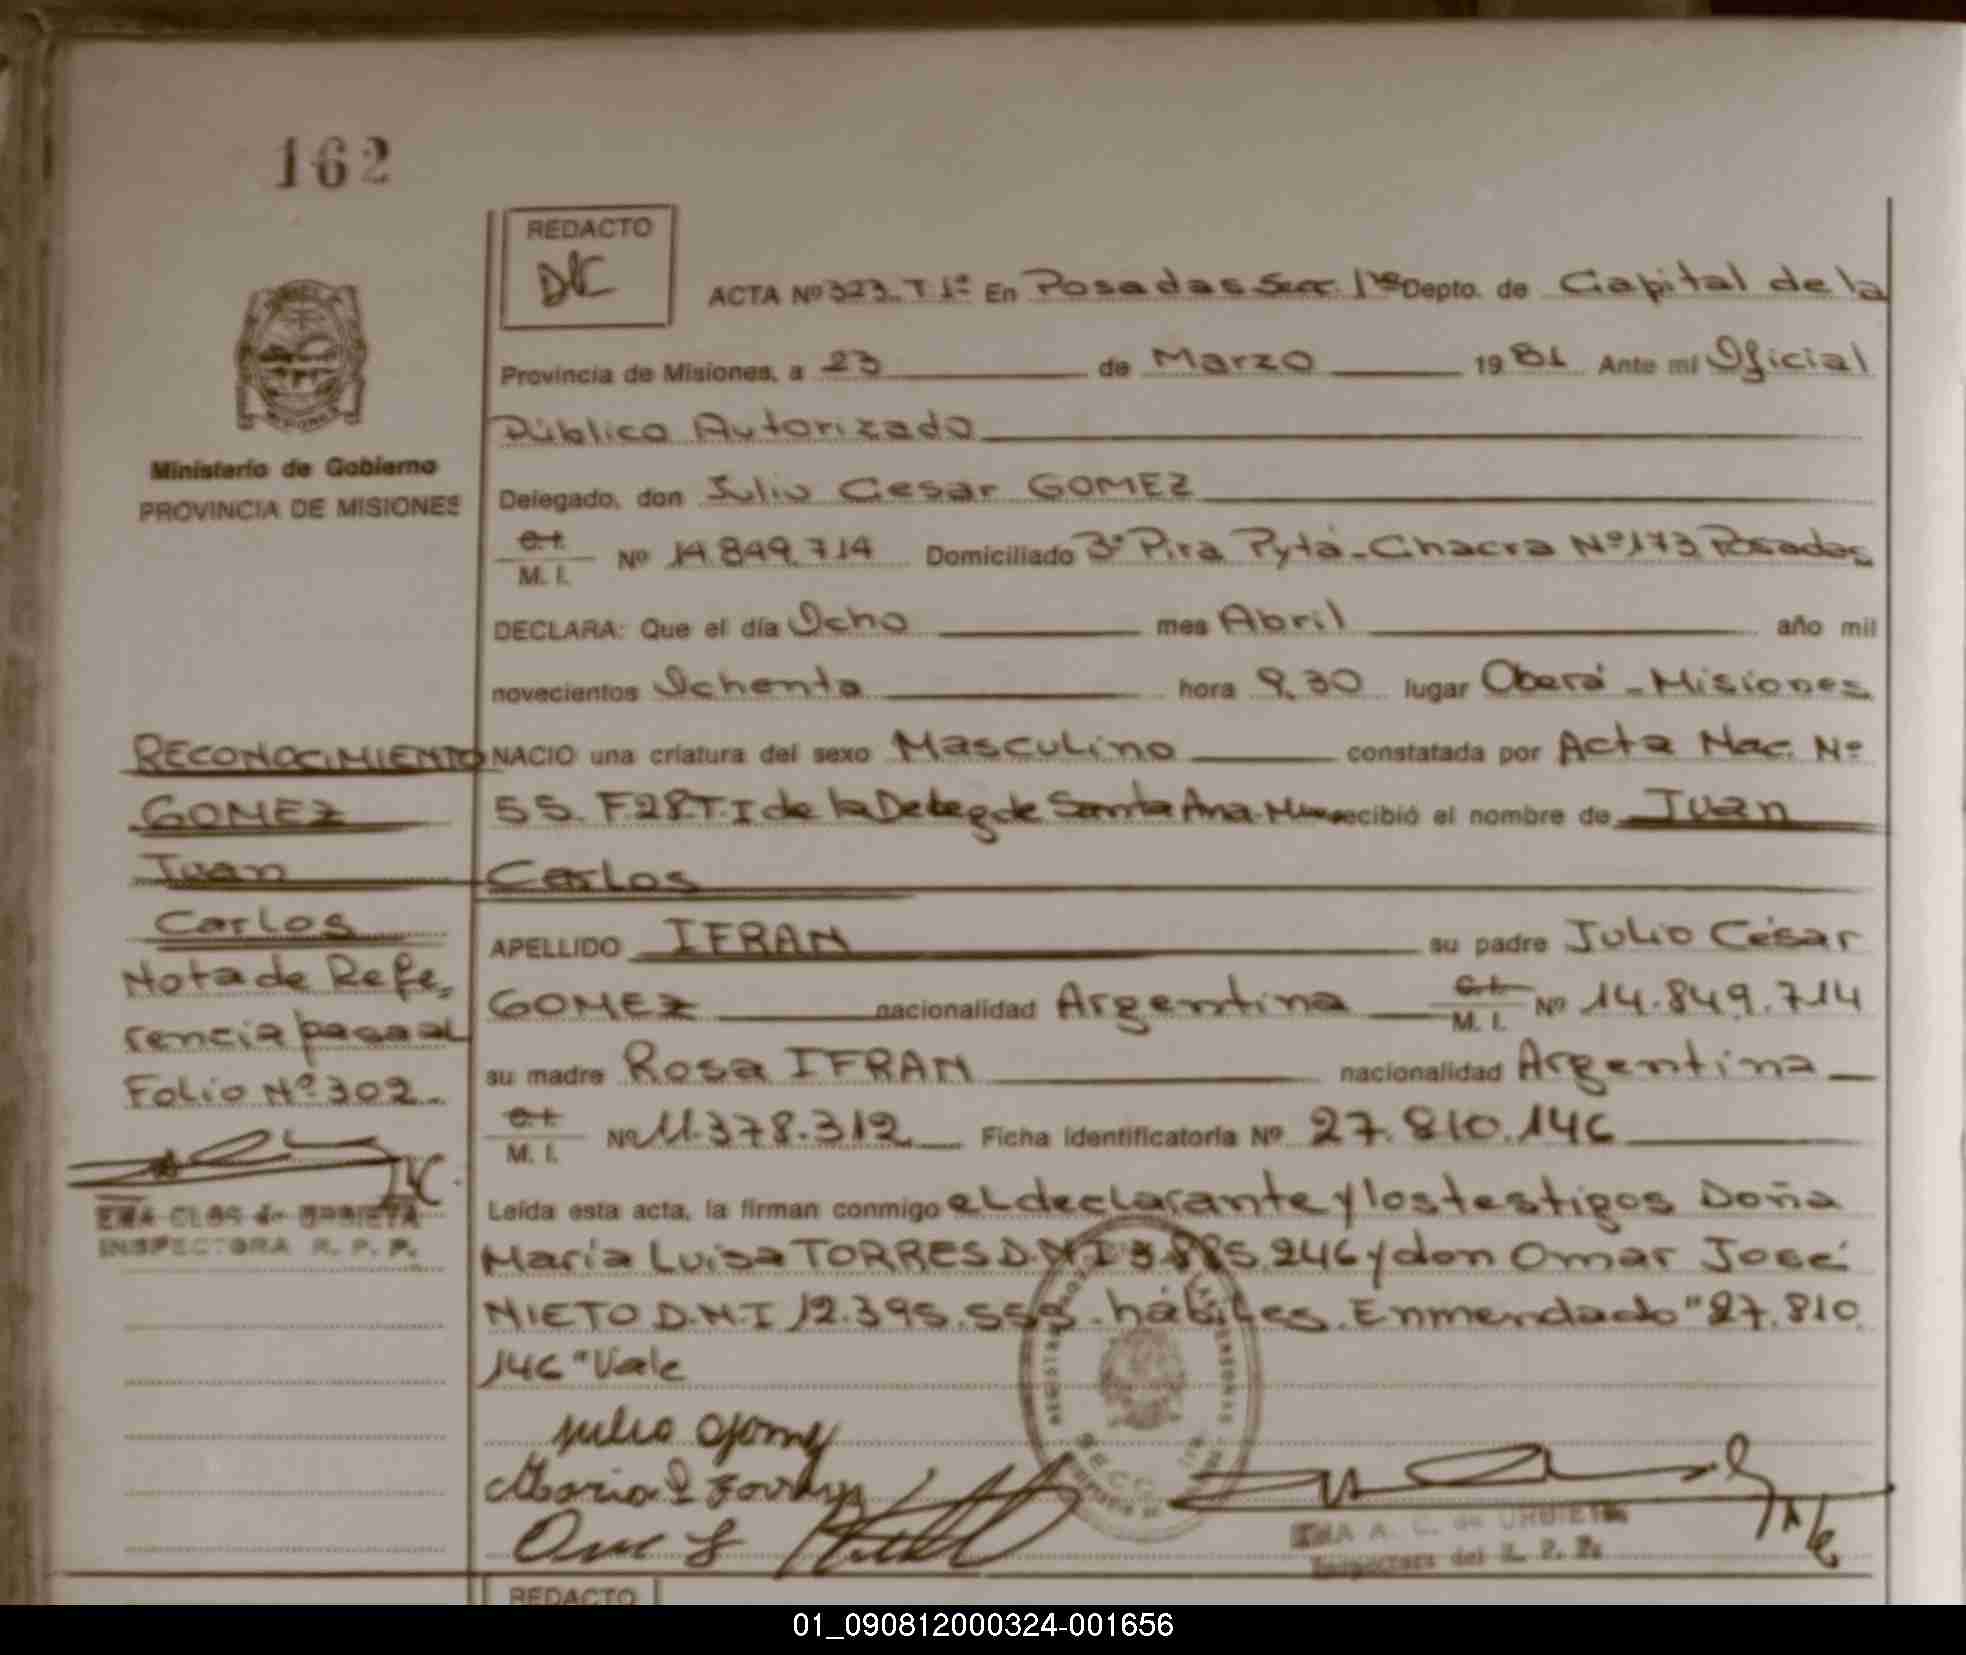 162
REDACTO
DC
ACTA Nº 323. T 1º En Posadas Secc. 1ra Depto. de Capital de la
Provincia de Misiones, a 23 de Marzo 1981 Ante mí Oficial
Público Autorizado
Ministerio de Gobierno
PROVINCIA DE MISIONES
Delegado, don Julio Cesar GOMEZ
C.I.
M. I. Nº 14.849.714 Domiciliado 3º Pira Pytá - Chacra Nº 173 Posadas
DECLARA: Que el día Ocho mes Abril año mil
novecientos Ochenta hora 9,30 lugar Oberá - Misiones
NACIO una criatura del sexo Masculino constatada por Acta Nac. Nº
55. F.28.T.I de la Deleg de Santa Ana recibió el nombre de Juan
Carlos
APELLIDO IFRAN su padre Julio César
GOMEZ nacionalidad Argentina C.I. M. I. Nº 14.849.714
su madre Rosa IFRAN nacionalidad Argentina
C.I.
M. I. Nº 11.378.312 Ficha identificatoria Nº 27.810.146
Leída esta acta, la firman conmigo el declarante y los testigos Doña
María Luisa TORRES D.N.I 3.885.246 y don Omar José
NIETO D.N.I 12.395.559 - hábiles. Enmendado "27.810
146" Vale
RECONOCIMIENTO
GOMEZ
Juan
Carlos
Nota de Refe,
rencia pasa al
Folio Nº 302.
EMA CLOS de URBIETA
INSPECTORA R. P. P.
Julio Gomez
EMA A. C. de URBIETA
Inspectora del R. P. P.
REDACTO
01_090812000324-001656